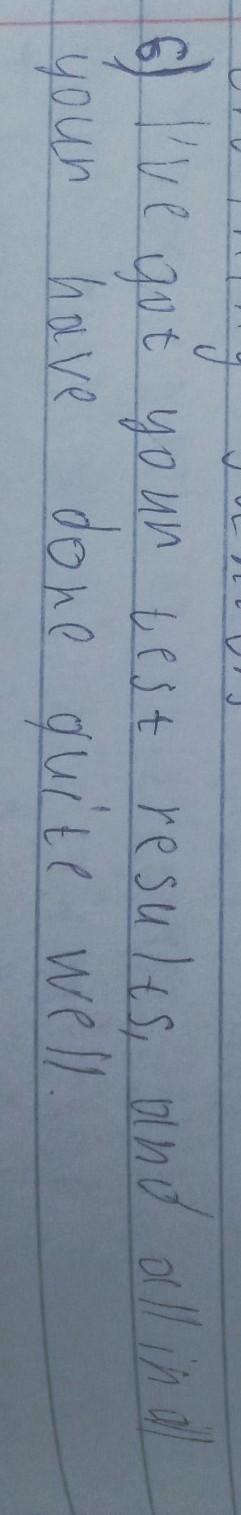 6) I've got your test results, and all in all
your have done quite well.